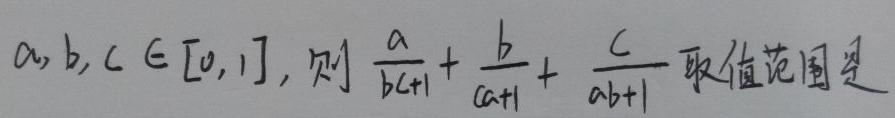 a, b, c ∈ [0, 1], 则 a/(bc+1) + b/(ca+1) + c/(ab+1) 取值范围是